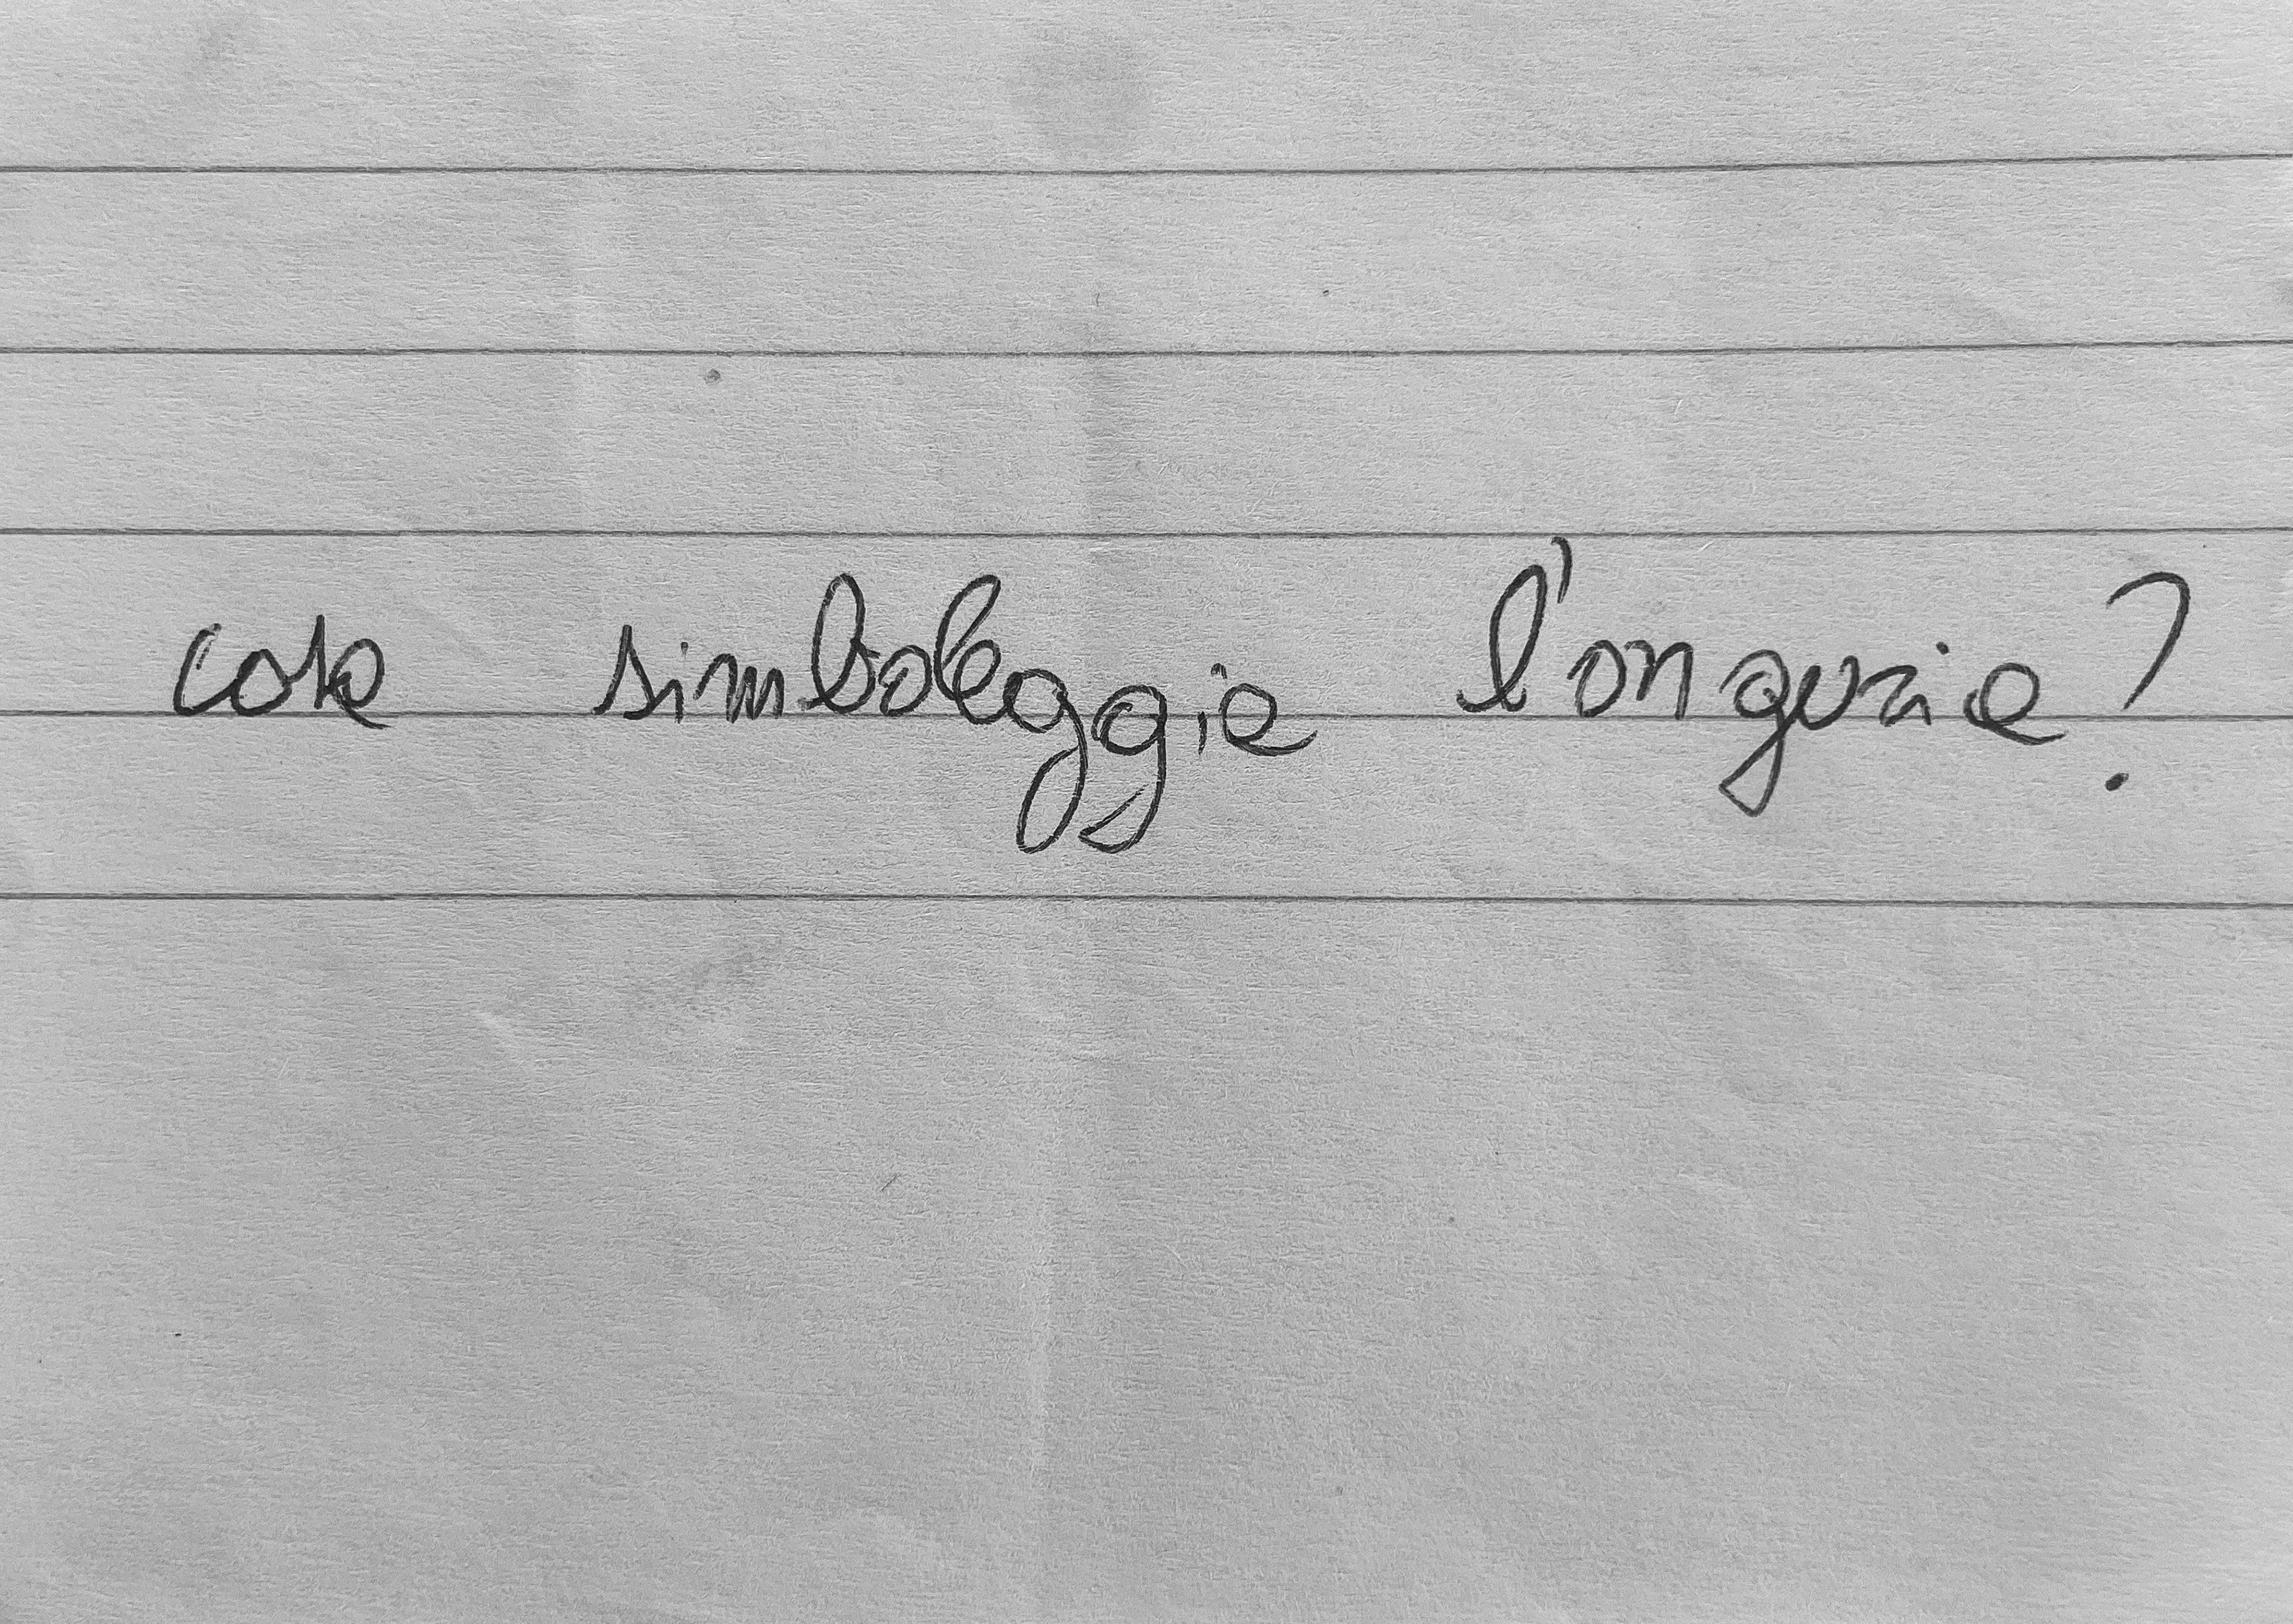 cosa simboleggia l'anguria?